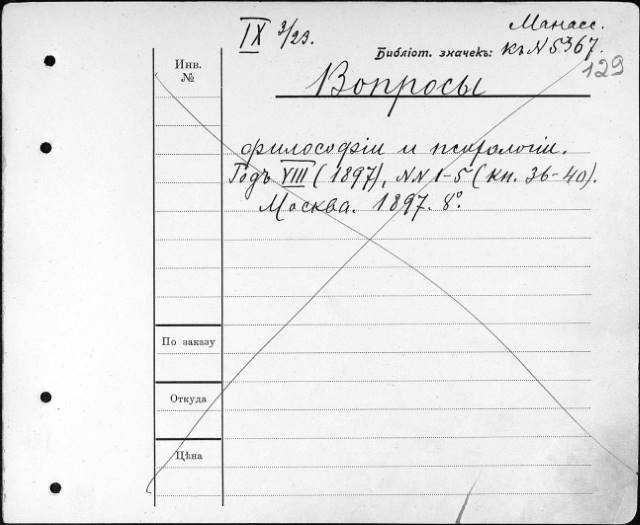 IX 3/23.
Манасс.
Библіот. значекъ: къ N 5367.
129
Инв.
№
Вопросы
философіи и психологіи.
Годъ VIII (1897), NN 1-5 (кн. 36-40).
Москва. 1897. 8°.
По заказу
Откуда
Цѣна